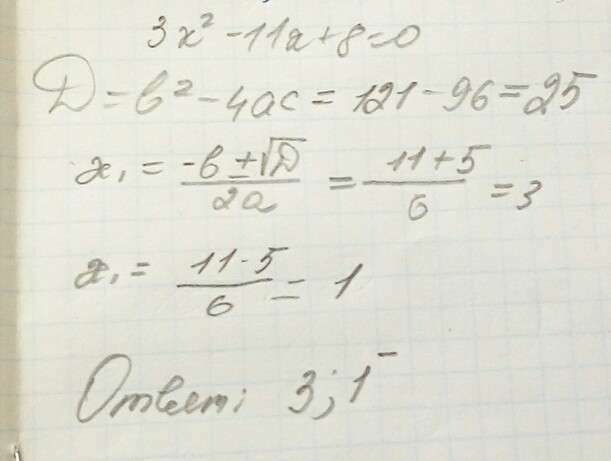 3x² - 11x + 8 = 0
D = b² - 4ac = 121 - 96 = 25
x₁ = (-b ± √D) / 2a = (11 + 5) / 6 = 3
x₁ = (11 - 5) / 6 = 1
Ответ: 3; 1